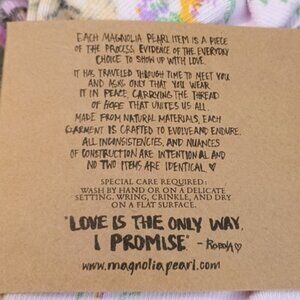 EACH MAGNOLIA PEARL ITEM IS A PIECE
OF THE PROCESS, EVIDENCE OF THE EVERYDAY
CHOICE TO SHOW UP WITH LOVE.
IT HAS TRAVELED THROUGH TIME TO MEET YOU
AND ASKS ONLY THAT YOU WEAR
IT IN PEACE, CARRYING THE THREAD
OF HOPE THAT UNITES US ALL.
MADE FROM NATURAL MATERIALS, EACH
GARMENT IS CRAFTED TO EVOLVE AND ENDURE.
ALL INCONSISTENCIES, AND NUANCES
OF CONSTRUCTION ARE INTENTIONAL AND
NO TWO ITEMS ARE IDENTICAL ♡
SPECIAL CARE REQUIRED:
WASH BY HAND OR ON A DELICATE
SETTING, WRING, CRINKLE, AND DRY
ON A FLAT SURFACE.
"LOVE IS THE ONLY WAY,
I PROMISE" - ROBBYA♡
www.magnoliapearl.com